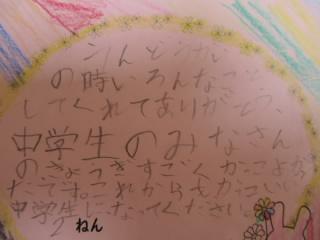 うんどうかい
の時いろんなこと
してくれてありがとう、
中学生のみなさん
のきょうぎすごくかっこよかっ
たです。これからもかっこいい
中学生になってください。
2 ねん